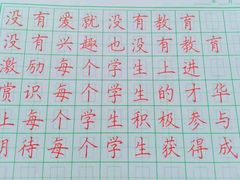 没有爱就没有教育
没有兴趣也没有教育
激励每个学生上进
赏识每个学生的才华
让每个学生积极参与
期待每个学生获得成